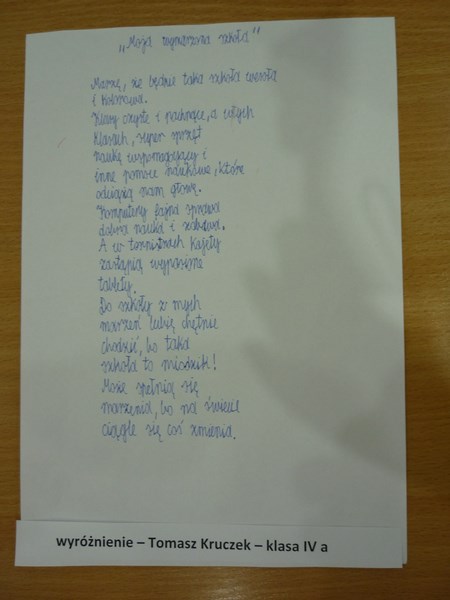 „Moja wymarzona szkoła"
Marzę, że będzie taka szkoła wesoła
i kolorowa.
Klasy czyste i pachnące, a w tych
klasach, super sprzęt
naukę wspomagający i
inne pomoce naukowe, które
odciążą nam głowę.
Komputery fajna sprawa
dobra nauka i zabawa.
A w tornistrach każety
zastąpią wyposażone
tablety.
Do szkoły z mych
marzeń lubię chętnie
chodzić, bo taka
szkoła to miodzik!
Może spełnią się
marzenia, bo na świecie
ciągle się coś zmienia.
wyróżnienie – Tomasz Kruczek – klasa IV a